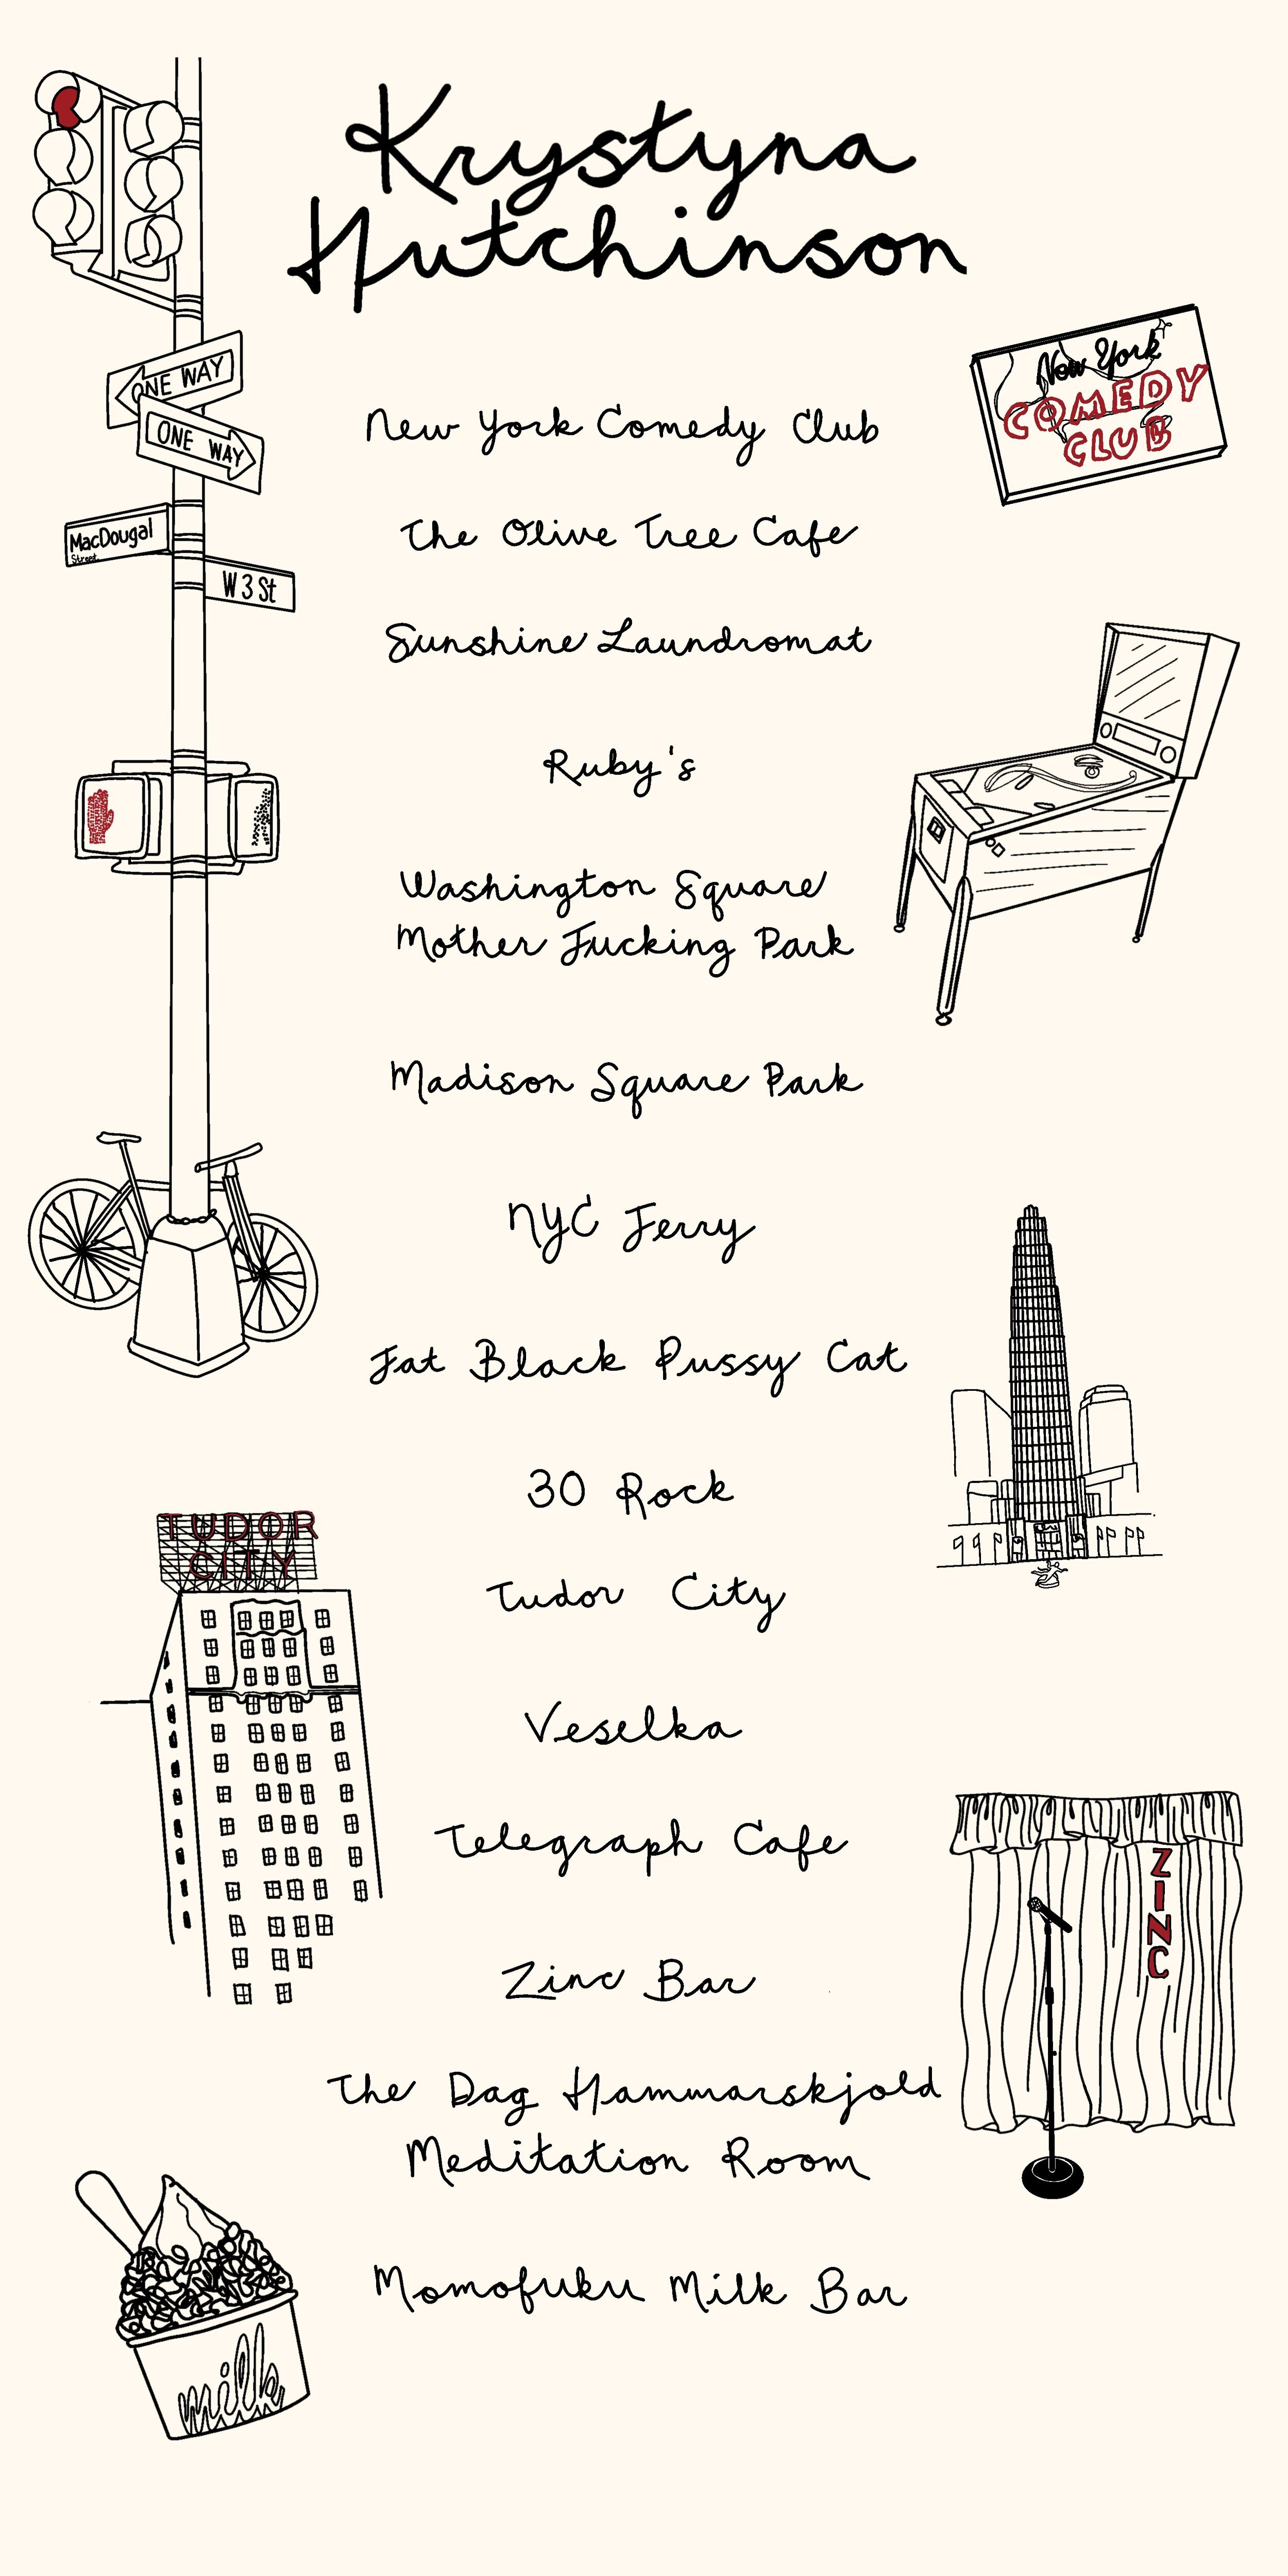 Krystyna
Hutchinson
ONE WAY
ONE WAY
New York
COMEDY
CLUB
New York Comedy Club
MacDougal
Street
W 3 St
The Olive Tree Cafe
Sunshine Laundromat
Ruby's
Washington Square
Mother Fucking Park
Madison Square Park
NYC Ferry
Fat Black Pussy Cat
30 Rock
TUDOR
CITY
Tudor City
Veselka
Telegraph Cafe
ZINC
Zinc Bar
The Dag Hammarskjold
Meditation Room
Momofuku Milk Bar
milk